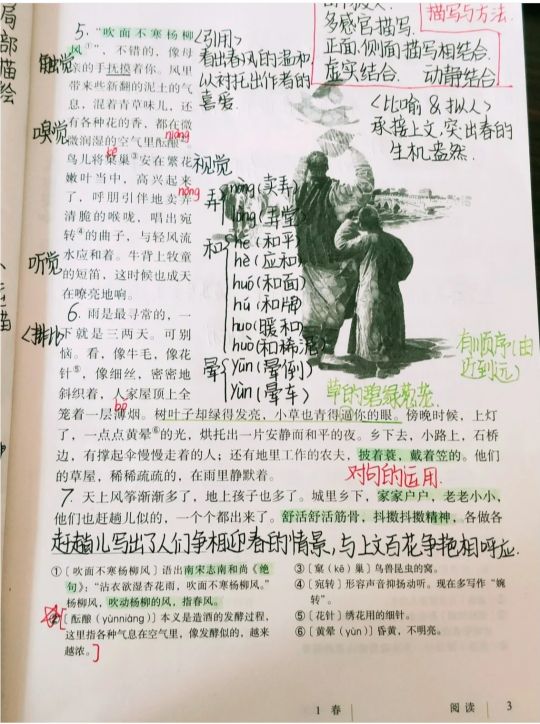 局部描绘
描写与方法
多感官描写
正面、侧面描写相结合
虚实结合 动静结合
5. “吹面不寒杨柳
风①”，不错的，像母
亲的手抚摸着你。风里
带来些新翻的泥土的气
息，混着青草味儿，还
有各种花的香，都在微
微润湿的空气里酝酿②。
鸟儿将窠巢③安在繁花
嫩叶当中，高兴起来
了，呼朋引伴地卖弄
清脆的喉咙，唱出宛
转④的曲子，与轻风流
水应和着。牛背上牧童
的短笛，这时候也成天
在嘹亮地响。
触觉
嗅觉
听觉
视觉
niàng
kē
nòng
〈引用〉
看出春风的温和，
从衬托出作者的
喜爱.
〈比喻 & 拟人〉
承接上文，突出春的
生机盎然.
弄
nòng (卖弄)
lòng (弄堂)
和
hé (和平)
hè (应和)
huó (和面)
hú (和牌)
huo (暖和)
huò (和稀泥)
晕
yūn (晕倒)
yùn (晕车)
6. 雨是最寻常的，一
下就是三两天。可别
恼。看，像牛毛，像花
针⑤，像细丝，密密地
斜织着，人家屋顶上全
笼着一层薄烟。树叶子却绿得发亮，小草也青得逼你的眼。傍晚时候，上灯
了，一点点黄晕⑥的光，烘托出一片安静而和平的夜。乡下去，小路上，石桥
边，有撑起伞慢慢走着的人；还有地里工作的农夫，披着蓑，戴着笠的。他们
的草屋，稀稀疏疏的，在雨里静默着。
〈排比〉
bó
有顺序(由
近到远)
草的碧绿葱茏
对句的运用
7. 天上风筝渐渐多了，地上孩子也多了。城里乡下，家家户户，老老小小，
他们也赶趟儿似的，一个个都出来了。舒活舒活筋骨，抖擞抖擞精神，各做各
赶趟儿写出了人们争相迎春的情景，与上文百花争艳相呼应.
①〔吹面不寒杨柳风〕语出南宋志南和尚《绝
句》：“沾衣欲湿杏花雨，吹面不寒杨柳风。”
杨柳风，吹动杨柳的风，指春风。
②〔酝酿（yùnniàng）〕本义是造酒的发酵过程，
这里指各种气息在空气里，像发酵似的，越来
越浓。
③〔窠（kē）巢〕鸟兽昆虫的窝。
④〔宛转〕形容声音抑扬动听。现在多写作“婉
转”。
⑤〔花针〕绣花用的细针。
⑥〔黄晕（yùn）〕昏黄，不明亮。
1 春
阅读 3